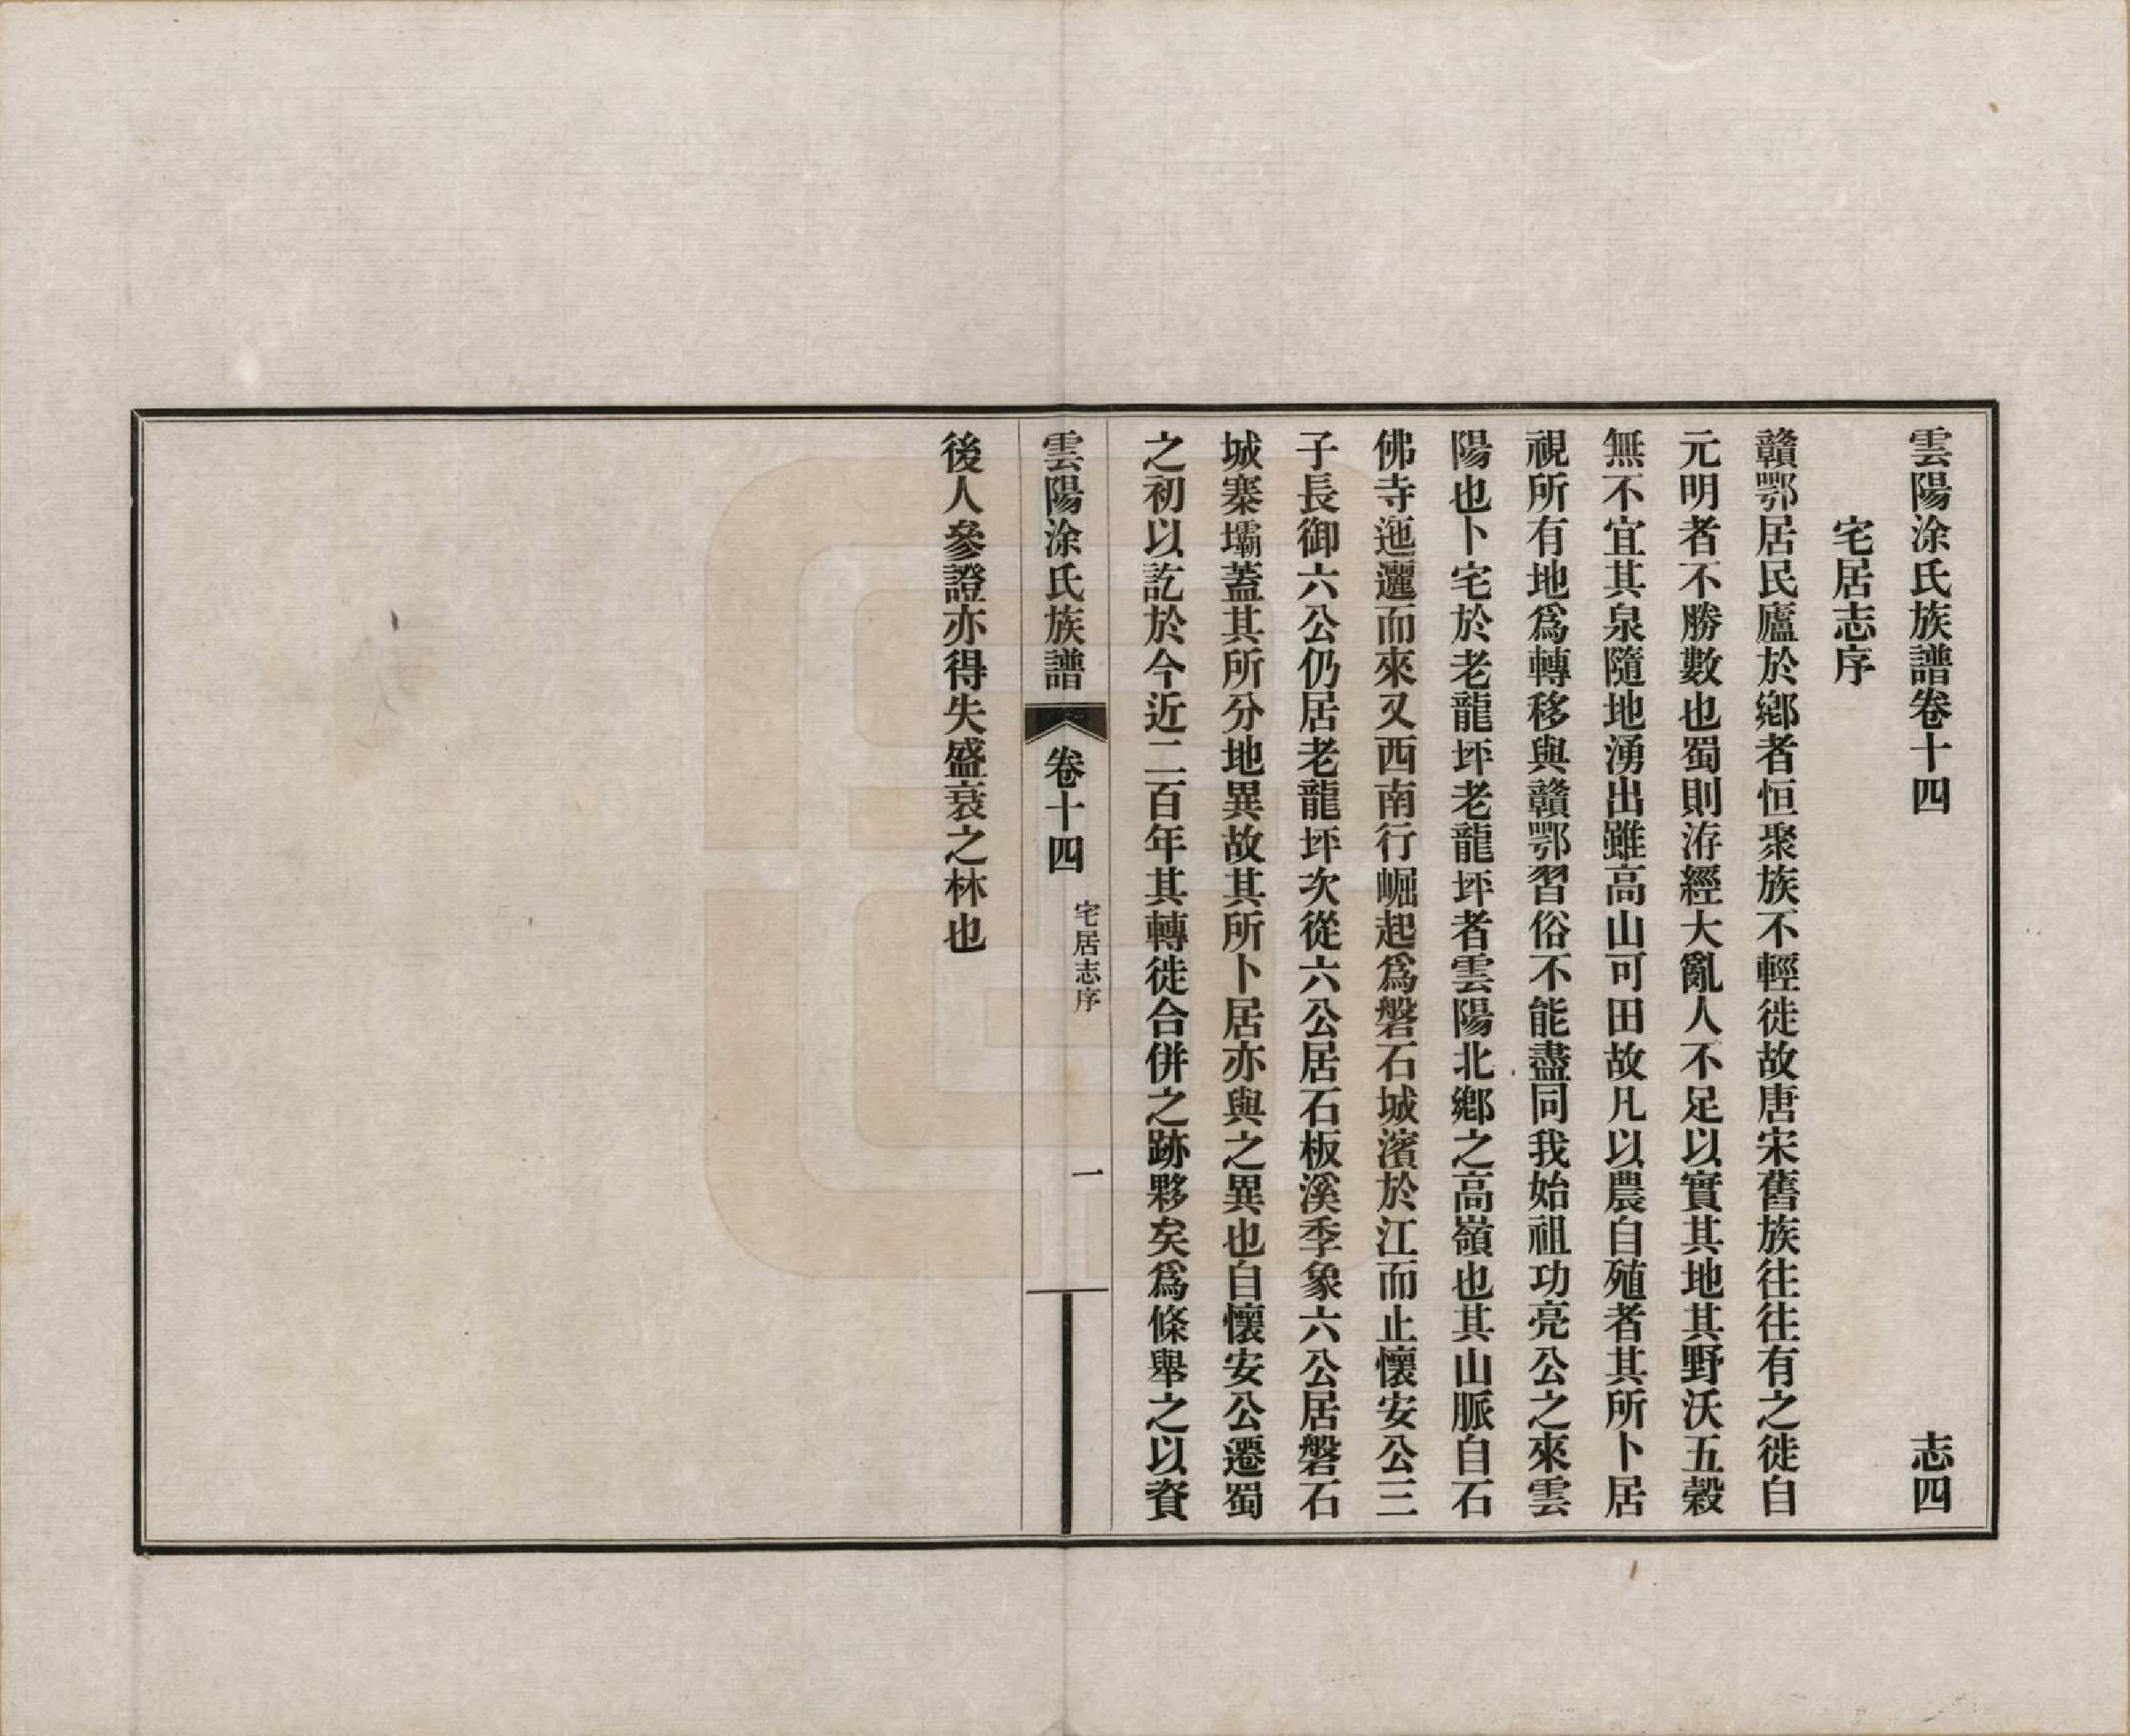 雲陽涂氏族譜卷十四　志四
宅居志序
贛鄂居民廬於鄉者恒聚族不輕徙故唐宋舊族往往有之徙自
元明者不勝數也蜀則洊經大亂人不足以實其地其野沃五穀
無不宜其泉隨地湧出雖高山可田故凡以農自殖者其所卜居
視所有地爲轉移與贛鄂習俗不能盡同我始祖功亮公之來雲
陽也卜宅於老龍坪老龍坪者雲陽北鄉之高嶺也其山脈自石
佛寺迤邐而來又西南行崛起爲磐石城濱於江而止懷安公三
子長御六公仍居老龍坪次從六公居石板溪季象六公居磐石
城寨壩蓋其所分地異故其所卜居亦與之異也自懷安公遷蜀
之初以訖於今近二百年其轉徙合併之跡夥矣爲條舉之以資
雲陽涂氏族譜　卷十四　宅居志序　一
後人參證亦得失盛衰之林也